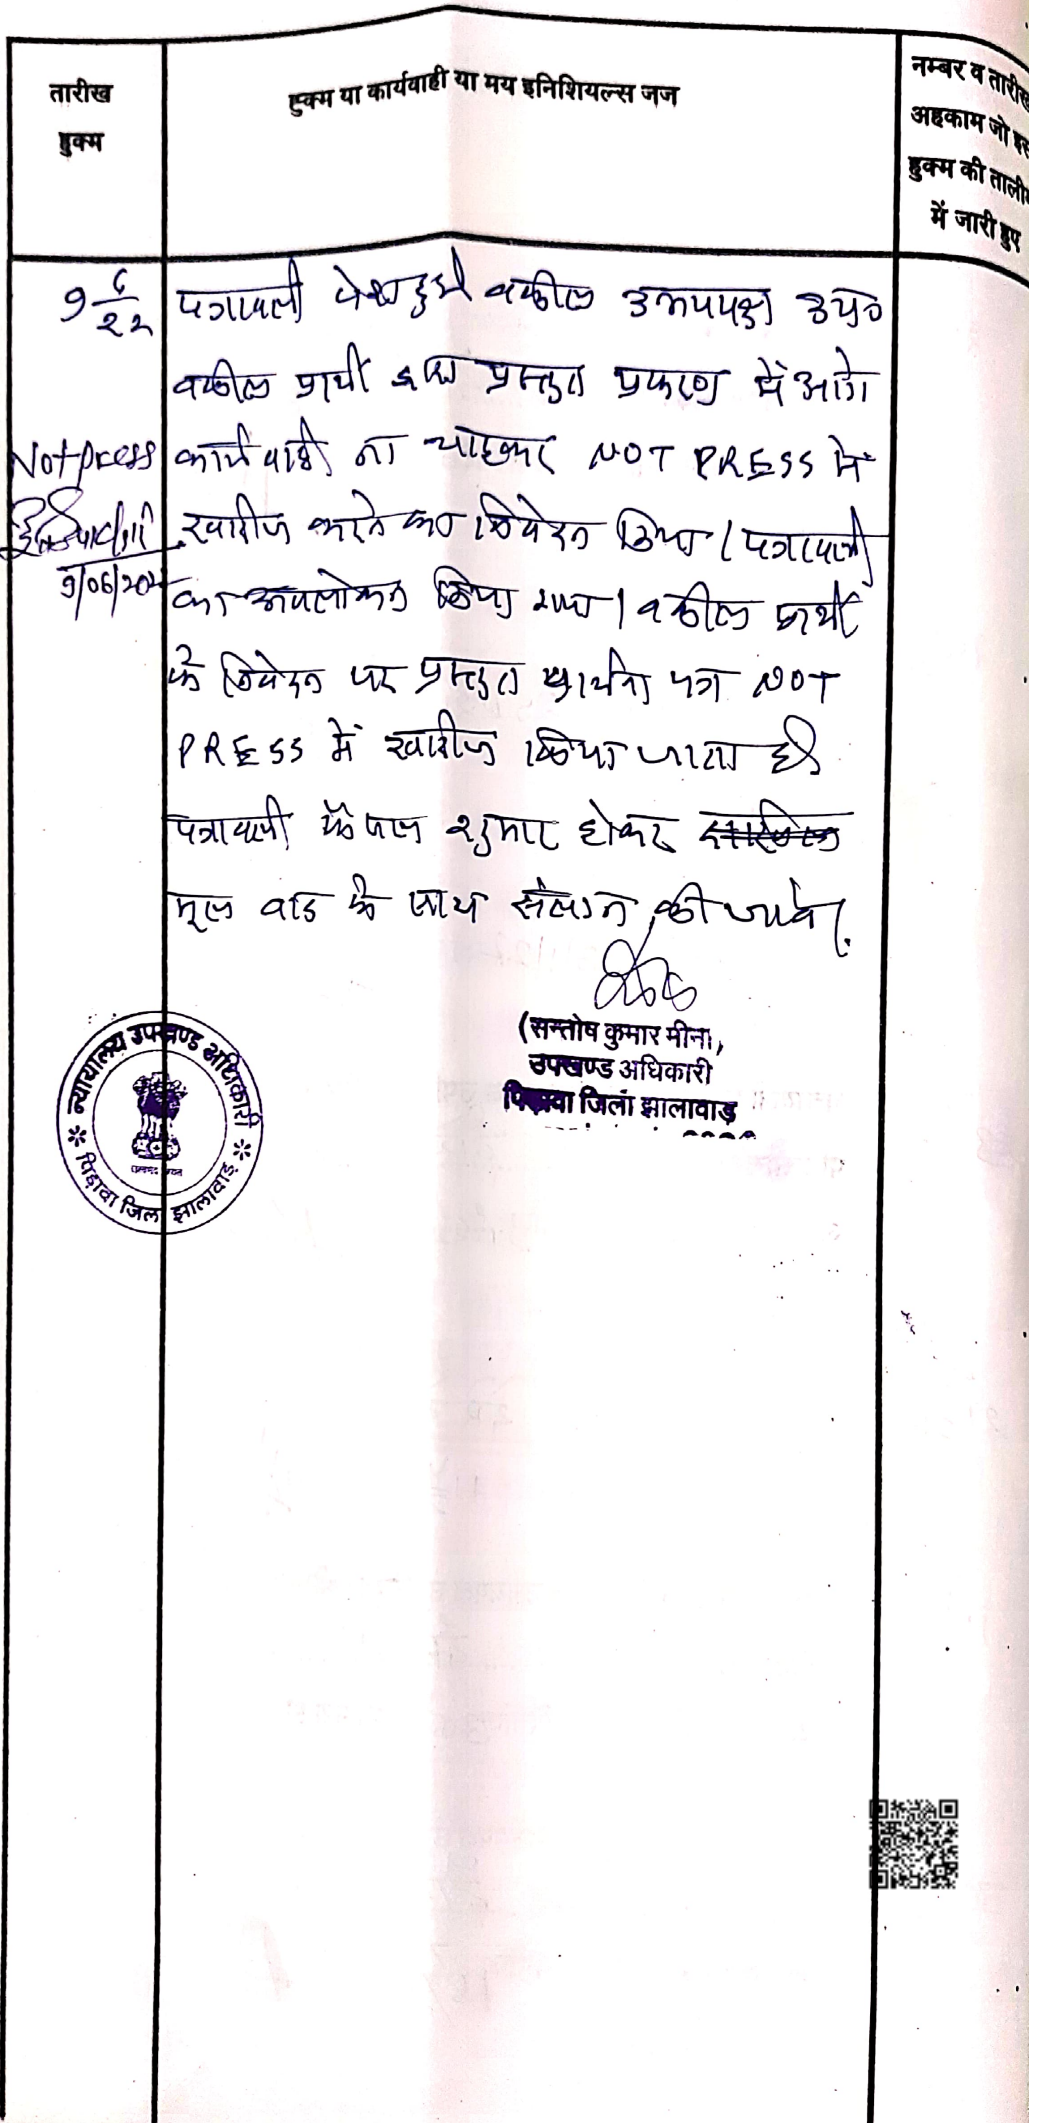 तारीख
हुक्म
हुक्म या कार्यवाही या मय इनिशियल्स जज
नम्बर व तारीख
अहकाम जो इस
हुक्म की तालीम
में जारी हुए
9 6/22
पत्रावली पेश हुई वकील उभयपक्ष उप०
वकील प्रार्थी द्वारा प्रस्तुत प्रकरण में आगे
कार्यवाही ना चाहकर NOT PRESS में
खारीज करने का निवेदन किया। पत्रावली
का अवलोकन किया गया। वकील प्रार्थी
के निवेदन पर प्रस्तुत प्रार्थना पत्र NOT
PRESS में खारीज किया जाता है।
पत्रावली फैसल शुमार होकर
मूल वाद के साथ संलग्न की जावे।
Not press
9/06/202
(सन्तोष कुमार मीना)
उपखण्ड अधिकारी
पिड़ावा जिला झालावाड़
न्यायालय उपखण्ड अधिकारी
पिड़ावा जिला झालावाड़